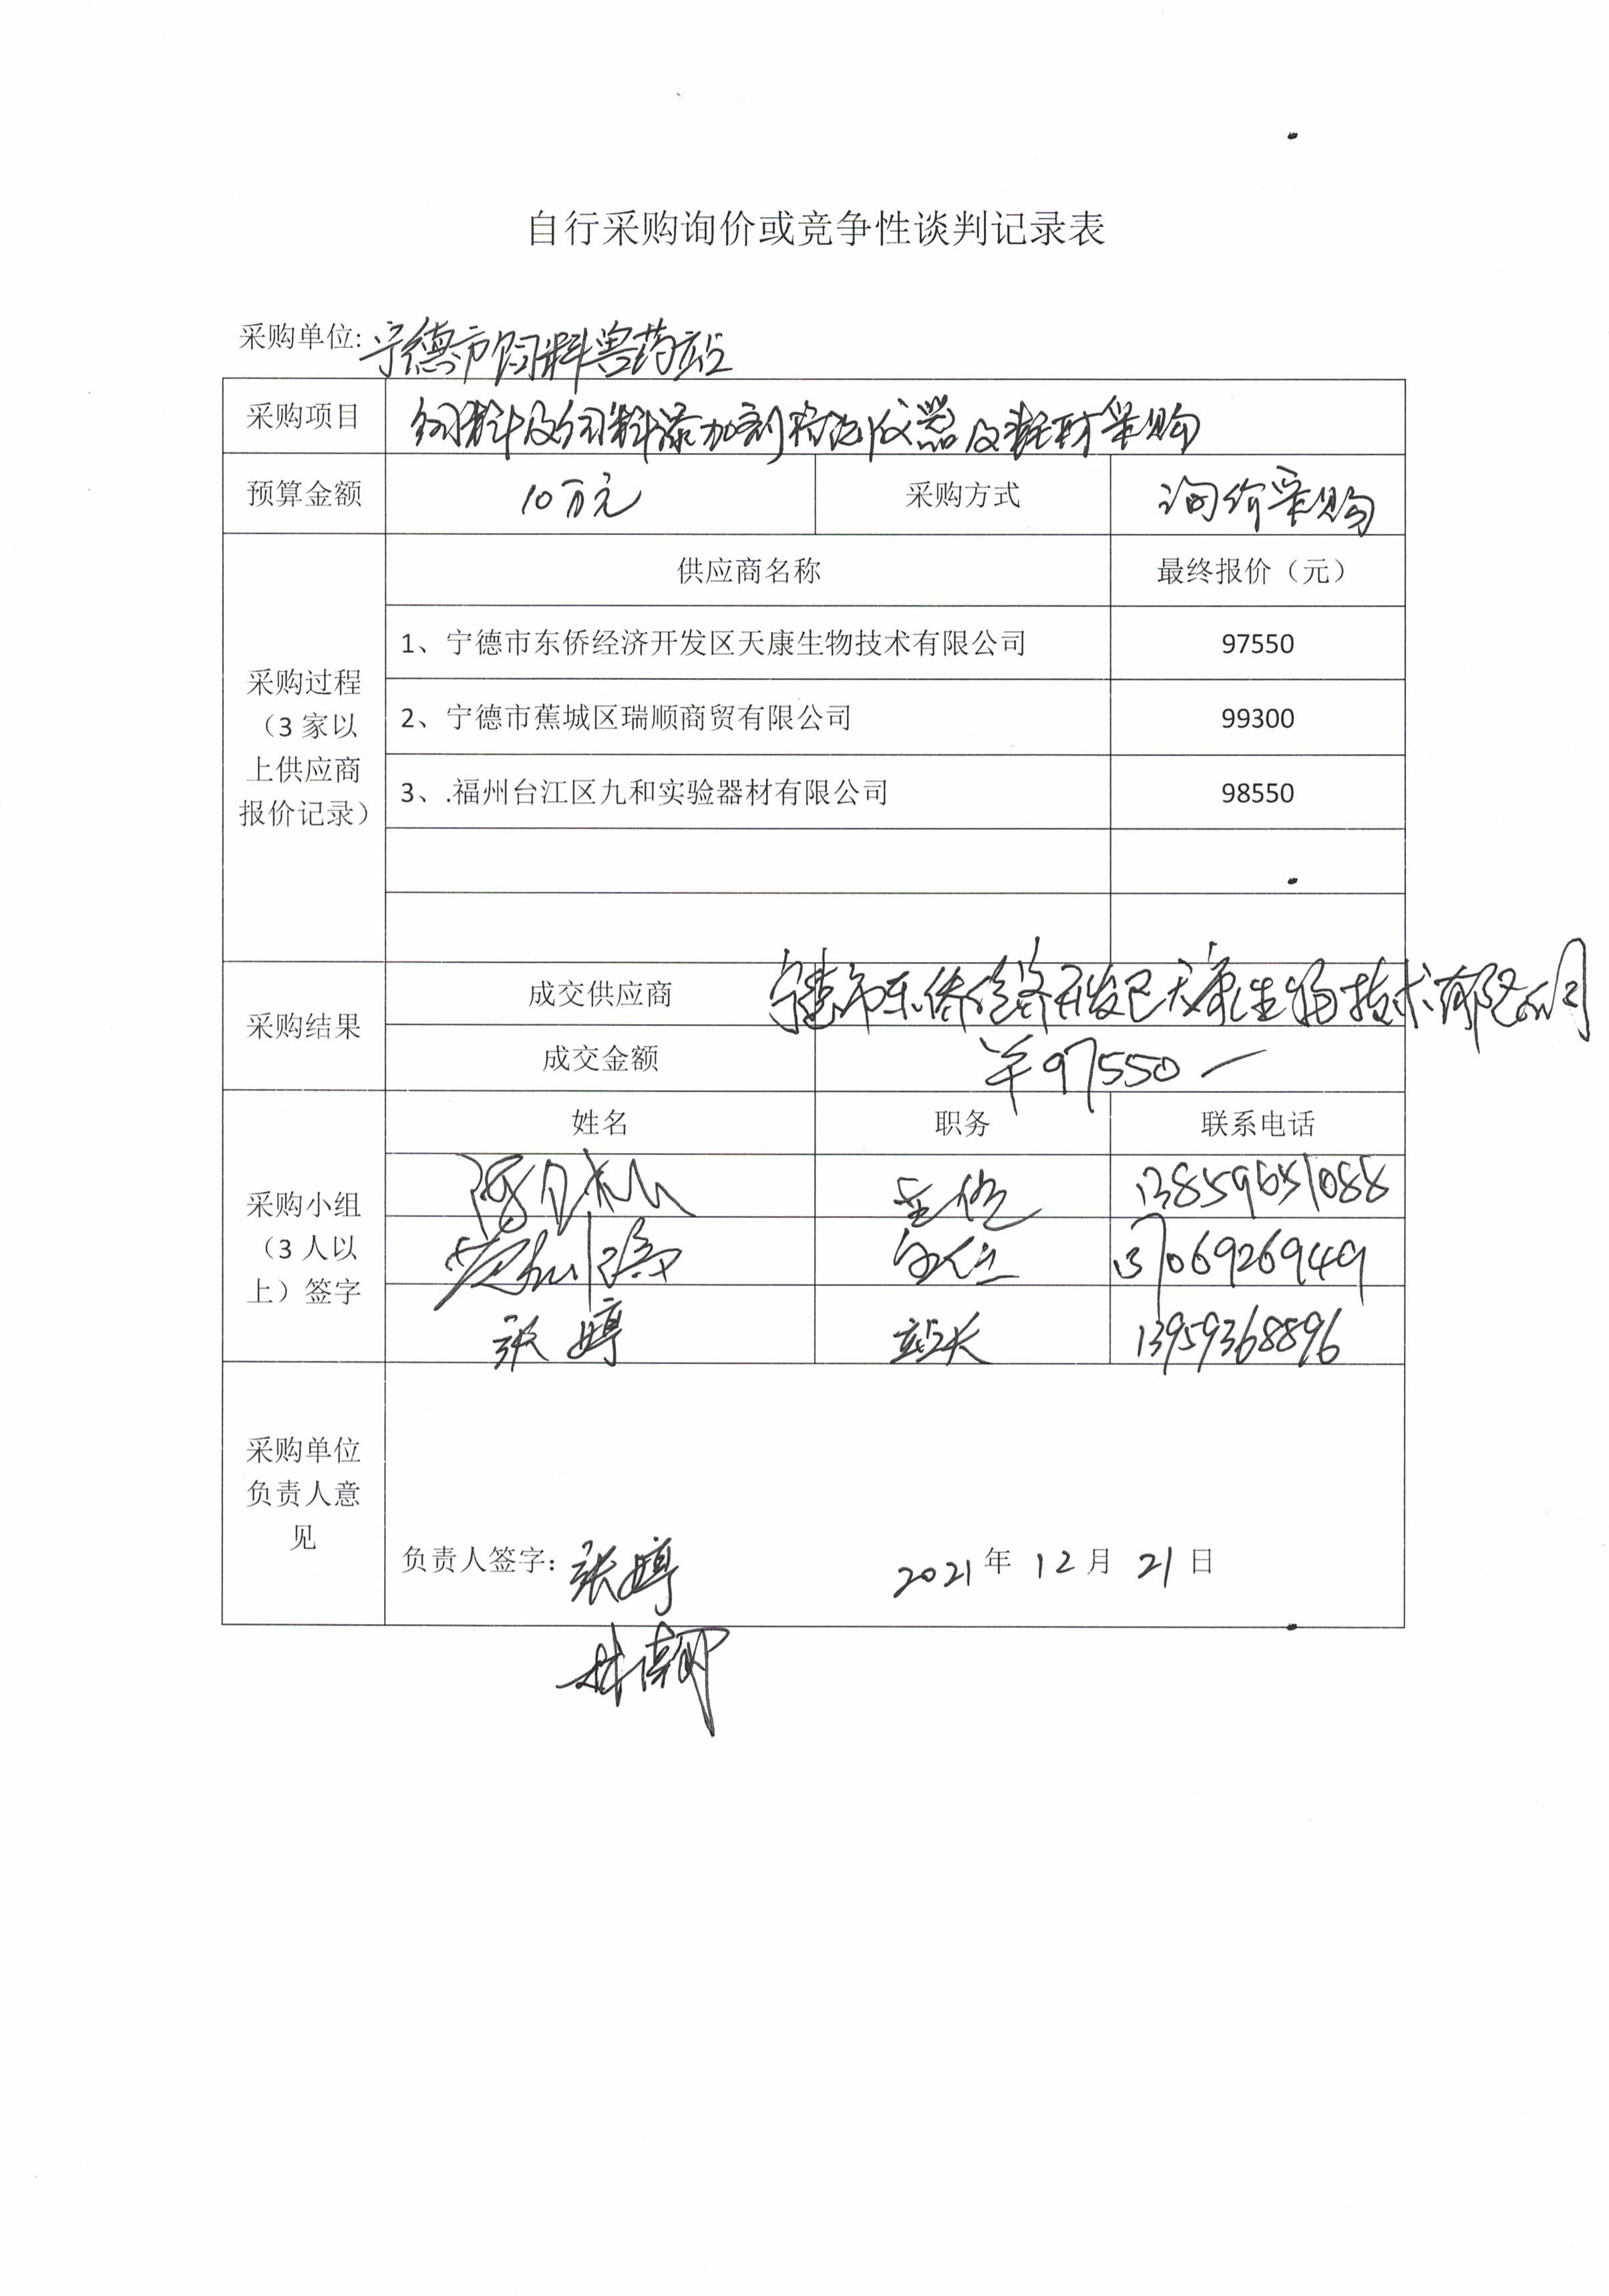 自行采购询价或竞争性谈判记录表
采购单位:宁德市饲料兽药站
采购项目 饲料及饲料添加剂检测仪器及耗材采购
预算金额 10万元 采购方式 询价采购
采购过程（3家以上供应商报价记录）
供应商名称 最终报价（元）
1、宁德市东侨经济开发区天康生物技术有限公司 97550
2、宁德市蕉城区瑞顺商贸有限公司 99300
3、.福州台江区九和实验器材有限公司 98550
采购结果
成交供应商 宁德市东侨经济开发区天康生物技术有限公司
成交金额 ¥97550—
采购小组（3人以上）签字
姓名 职务 联系电话
主任
主任 13706926949
张婷 站长 13959368896
采购单位负责人意见
负责人签字: 张婷 2021年12月21日